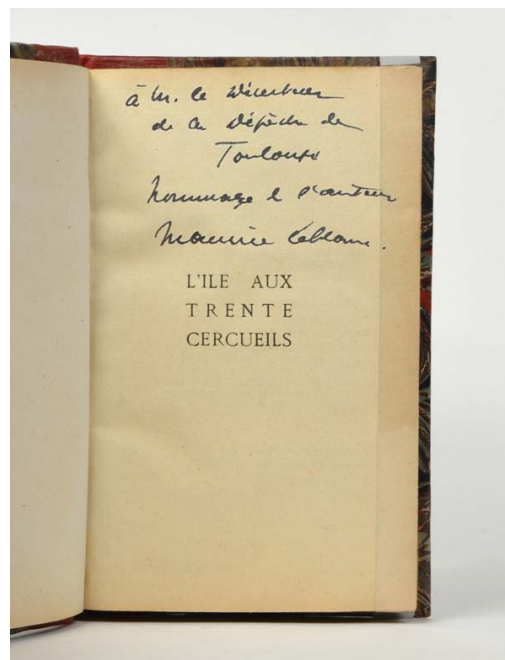 à M. le Directeur
de la Dépêche de
Toulouse
hommage de l'auteur
Maurice Leblanc.
L'ILE AUX
TRENTE
CERCUEILS